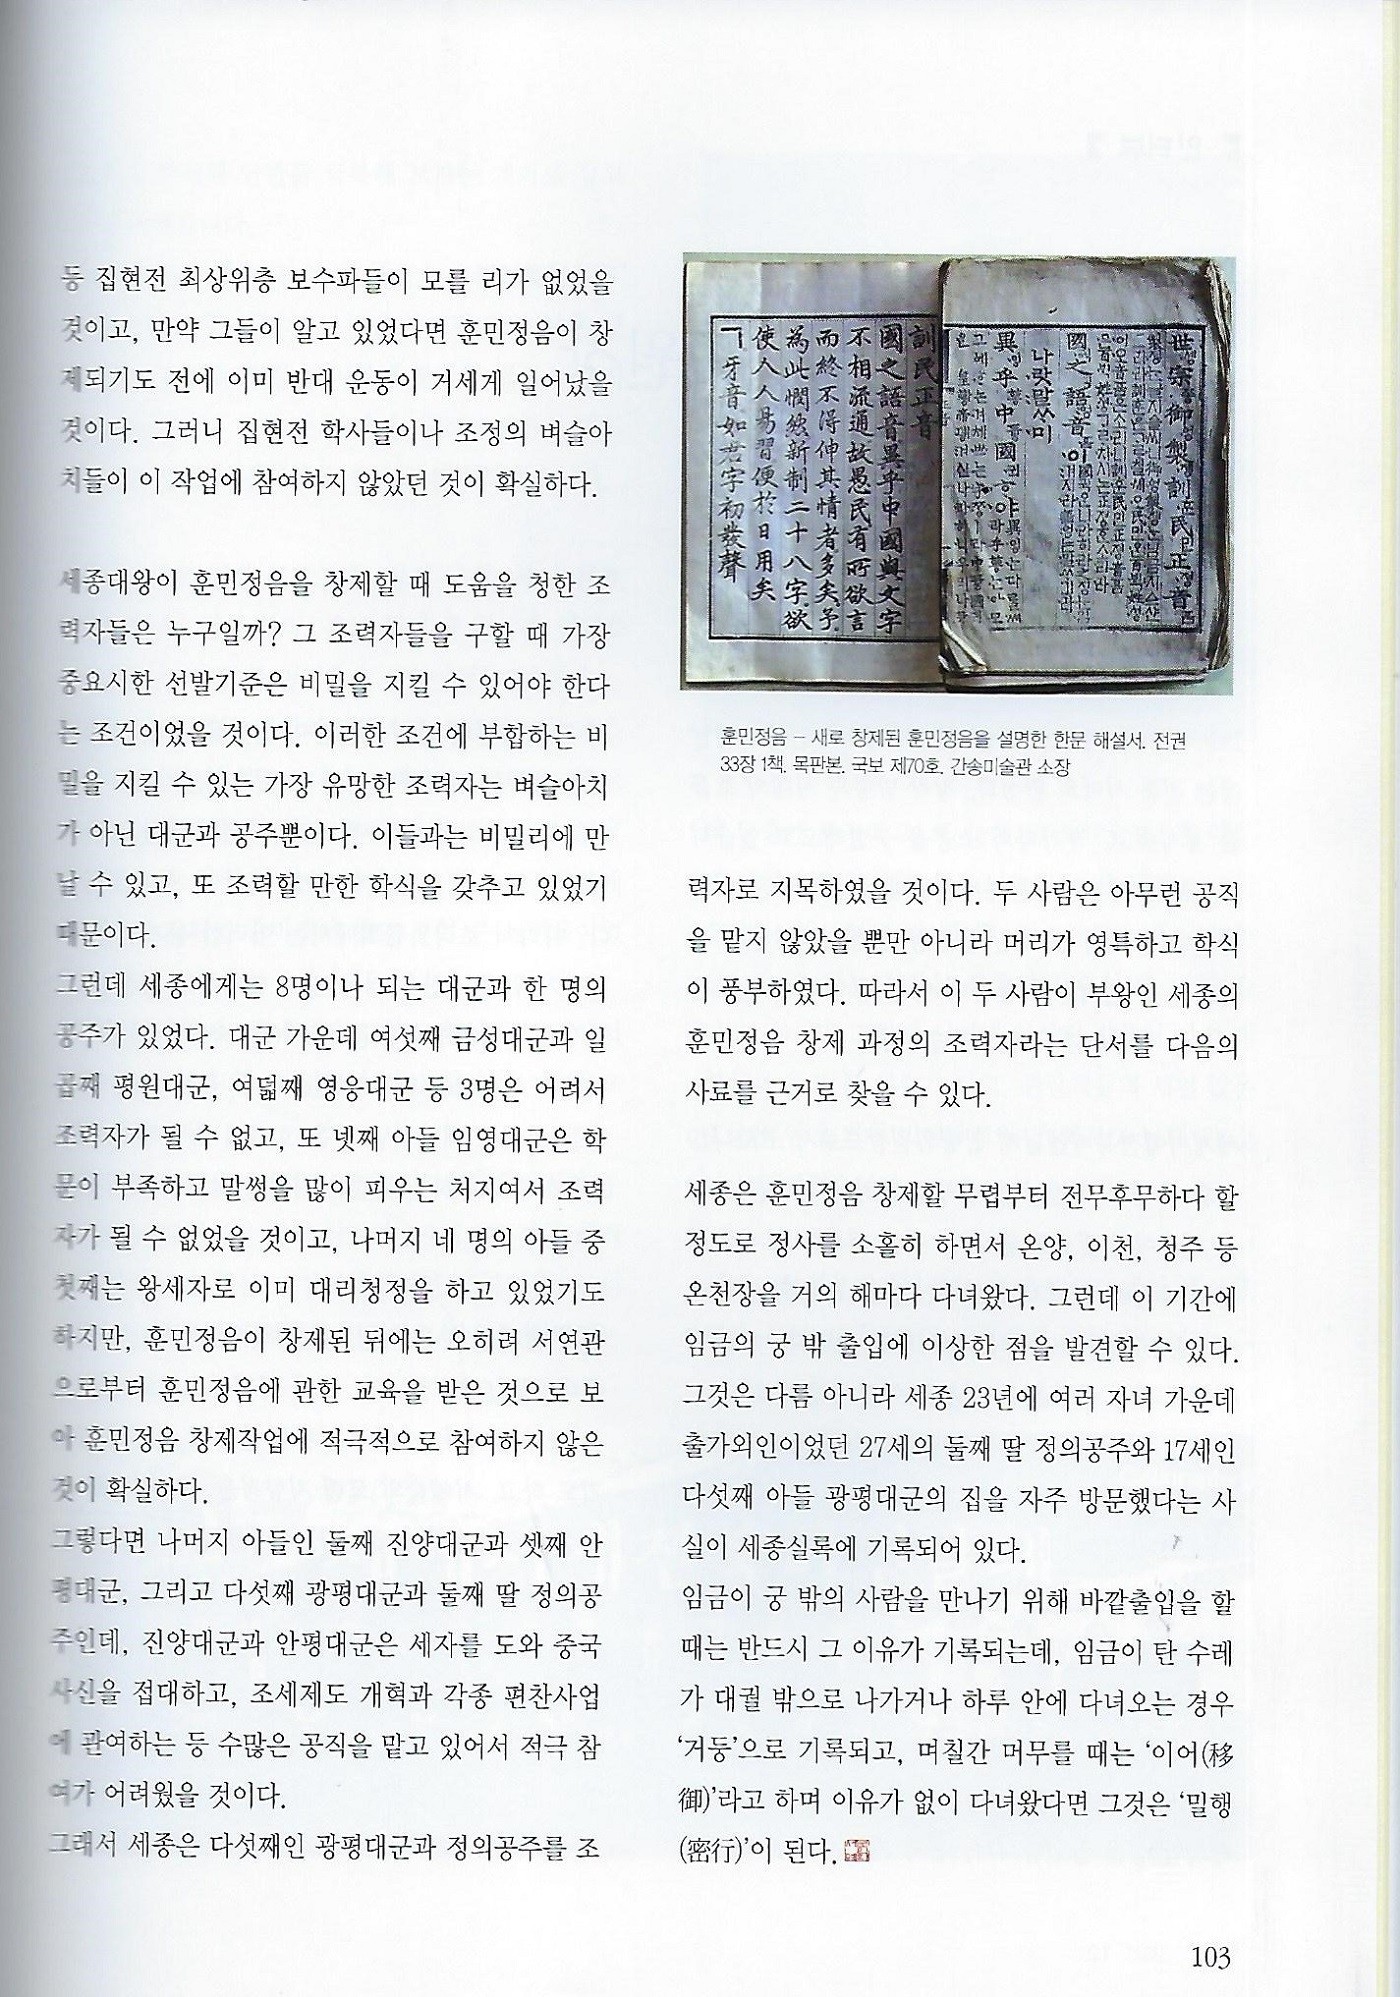 등 집현전 최상위층 보수파들이 모를 리가 없었을
것이고, 만약 그들이 알고 있었다면 훈민정음이 창
제되기도 전에 이미 반대 운동이 거세게 일어났을
것이다. 그러니 집현전 학사들이나 조정의 벼슬아
치들이 이 작업에 참여하지 않았던 것이 확실하다.
세종대왕이 훈민정음을 창제할 때 도움을 청한 조
력자들은 누구일까? 그 조력자들을 구할 때 가장
중요시한 선발기준은 비밀을 지킬 수 있어야 한다
는 조건이었을 것이다. 이러한 조건에 부합하는 비
밀을 지킬 수 있는 가장 유망한 조력자는 벼슬아치
가 아닌 대군과 공주뿐이다. 이들과는 비밀리에 만
날 수 있고, 또 조력할 만한 학식을 갖추고 있었기
때문이다.
그런데 세종에게는 8명이나 되는 대군과 한 명의
공주가 있었다. 대군 가운데 여섯째 금성대군과 일
곱째 평원대군, 여덟째 영응대군 등 3명은 어려서
조력자가 될 수 없고, 또 넷째 아들 임영대군은 학
문이 부족하고 말썽을 많이 피우는 처지여서 조력
자가 될 수 없었을 것이고, 나머지 네 명의 아들 중
첫째는 왕세자로 이미 대리청정을 하고 있었기도
하지만, 훈민정음이 창제된 뒤에는 오히려 서연관
으로부터 훈민정음에 관한 교육을 받은 것으로 보
아 훈민정음 창제작업에 적극적으로 참여하지 않은
것이 확실하다.
그렇다면 나머지 아들인 둘째 진양대군과 셋째 안
평대군, 그리고 다섯째 광평대군과 둘째 딸 정의공
주인데, 진양대군과 안평대군은 세자를 도와 중국
사신을 접대하고, 조세제도 개혁과 각종 편찬사업
에 관여하는 등 수많은 공직을 맡고 있어서 적극 참
여가 어려웠을 것이다.
그래서 세종은 다섯째인 광평대군과 정의공주를 조
世宗御製訓民正音
國之語音이
나랏말ᄊᆞ미
異乎中國ᄒᆞ야
訓民正音
國之語音異乎中國與文字
不相流通故愚民有所欲言
而終不得伸其情者多矣予
為此憫然新制二十八字欲
使人人易習便於日用矣
ㄱ牙音如君字初發聲
훈민정음 – 새로 창제된 훈민정음을 설명한 한문 해설서. 전권
33장 1책. 목판본. 국보 제70호. 간송미술관 소장
력자로 지목하였을 것이다. 두 사람은 아무런 공직
을 맡지 않았을 뿐만 아니라 머리가 영특하고 학식
이 풍부하였다. 따라서 이 두 사람이 부왕인 세종의
훈민정음 창제 과정의 조력자라는 단서를 다음의
사료를 근거로 찾을 수 있다.
세종은 훈민정음 창제할 무렵부터 전무후무하다 할
정도로 정사를 소홀히 하면서 온양, 이천, 청주 등
온천장을 거의 해마다 다녀왔다. 그런데 이 기간에
임금의 궁 밖 출입에 이상한 점을 발견할 수 있다.
그것은 다름 아니라 세종 23년에 여러 자녀 가운데
출가외인이었던 27세의 둘째 딸 정의공주와 17세인
다섯째 아들 광평대군의 집을 자주 방문했다는 사
실이 세종실록에 기록되어 있다.
임금이 궁 밖의 사람을 만나기 위해 바깥출입을 할
때는 반드시 그 이유가 기록되는데, 임금이 탄 수레
가 대궐 밖으로 나가거나 하루 안에 다녀오는 경우
‘거둥’으로 기록되고, 며칠간 머무를 때는 ‘이어(移
御)’라고 하며 이유가 없이 다녀왔다면 그것은 ‘밀행
(密行)’이 된다.
103